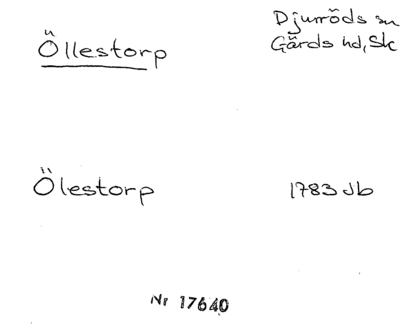 Öllestorp
Djurröds sn
Gärds hd, Sk
Ölestorp
1783 Jb
Nr 17640